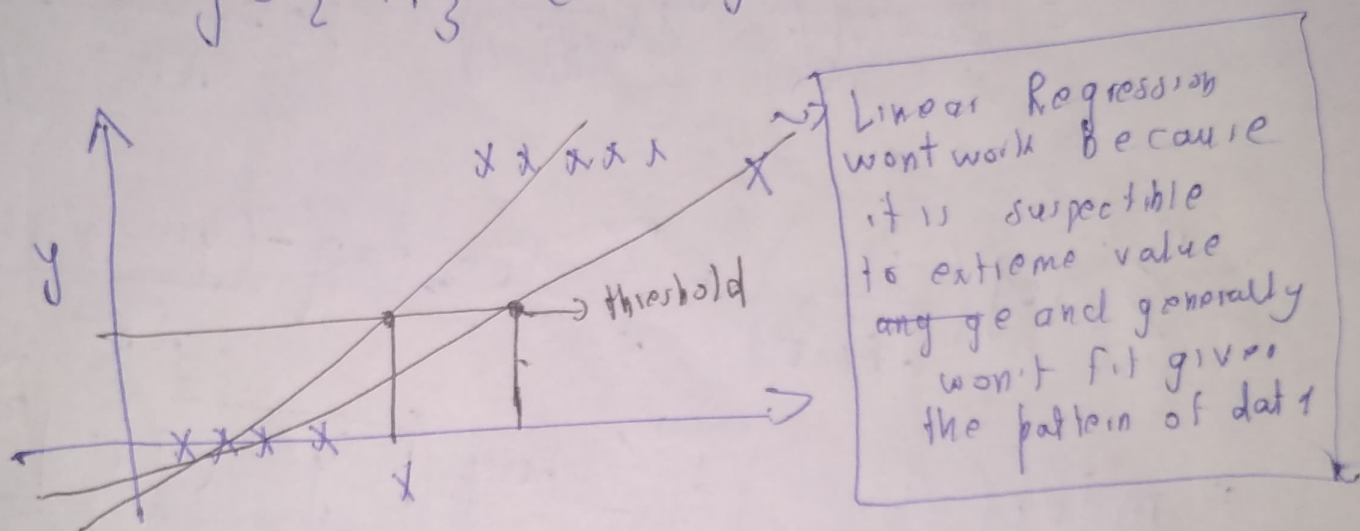 y
x x x x x
x
threshold
x x x x
x
Linear Regression
wont work Because
it is suspectible
to extreme value
and generally
won't fit given
the pattern of data